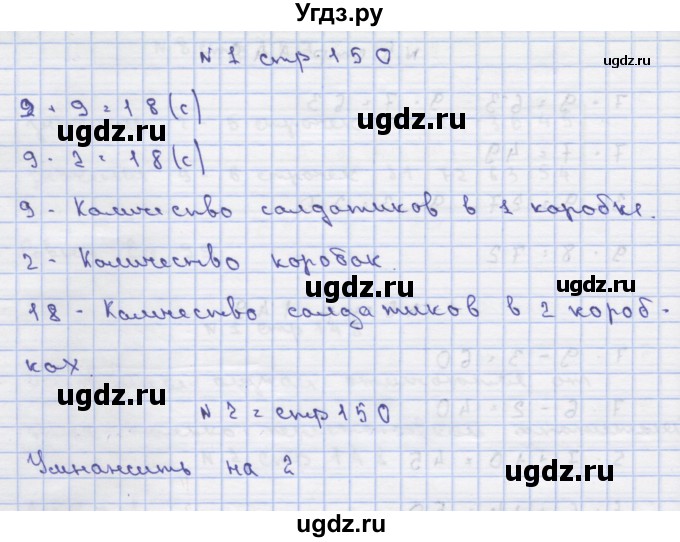 Угдз.ру
N 1 стр. 150
ugdz.ru
9 + 9 = 18 (с)
ugdz.ru ugdz.ru
9 · 2 = 18 (с)
9 - Количество солдатиков в 1 коробке.
2 - Количество коробок.
ugdz.ru ugdz.ru
18 - Количество солдатиков в 2 короб-
ках.
ugdz.ru
N 2 = стр 150
ugdz.ru
Умножить на 2
ugdz.ru ugdz.ru
ugdz.ru